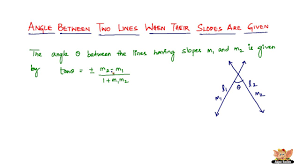 ANGLE BETWEEN TWO LINES WHEN THEIR SLOPES ARE GIVEN
The angle θ between the lines having slopes m₁ and m₂ is given
by tanθ = ± (m₂ - m₁) / (1 + m₁m₂)
l₁ l₂
θ
m₁ m₂